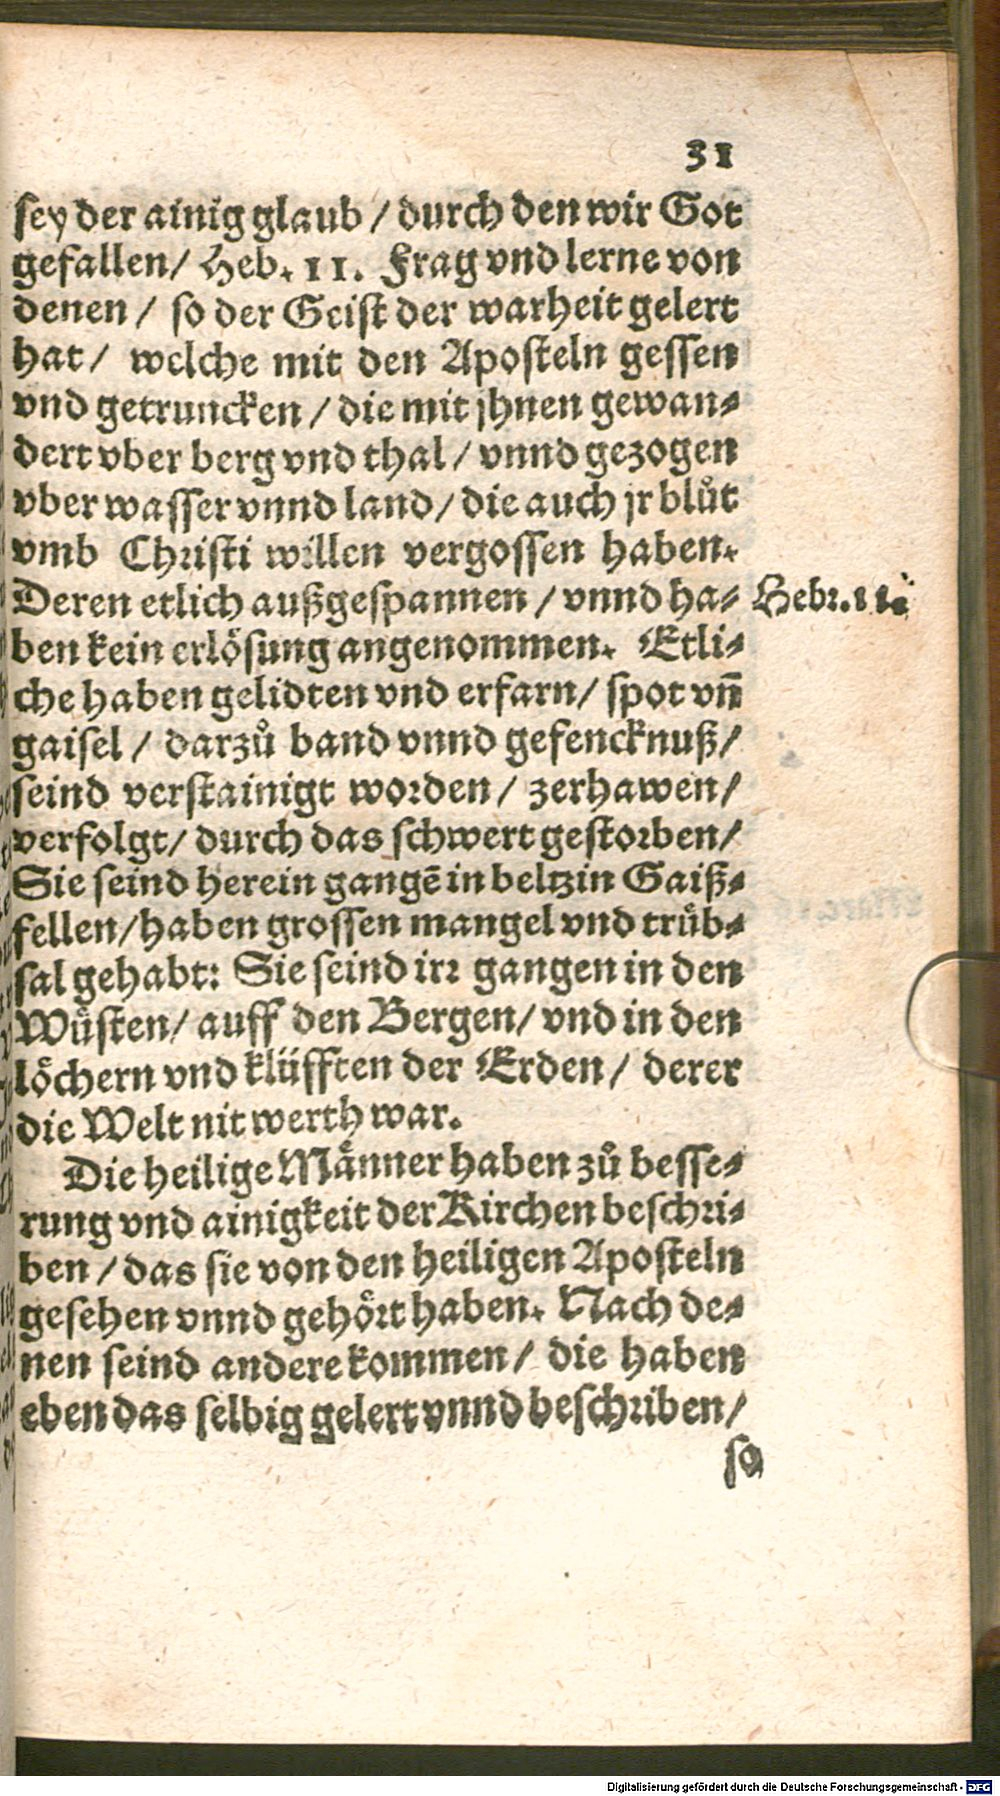 31
sey der ainig glaub / durch den wir Got
gefallen / Heb. 11. Frag vnd lerne von
denen / so der Geist der warheit gelert
hat / welche mit den Aposteln gessen
vnd getruncken / die mit jhnen gewan⸗
dert vber berg vnd thal / vnnd gezogen
vber wasser vnnd land / die auch jr blůt
vmb Christi willen vergossen haben.
Deren etlich außgespannen / vnnd ha⸗ Hebr. 11.
ben kein erlösung angenommen. Etli⸗
che haben gelidten vnd erfarn / spot vñ
gaisel / darzů band vnnd gefencknuß /
seind verstainigt worden / zerhawen /
verfolgt / durch das schwert gestorben /
Sie seind herein gangē in beltzin Gaiß⸗
fellen / haben grossen mangel vnd trüb⸗
sal gehabt: Sie seind irr gangen in den
Wüsten / auff den Bergen / vnd in den
löchern vnd klüfften der Erden / derer
die Welt nit werth war.
Die heilige Männer haben zů besse⸗
rung vnd ainigkeit der Kirchen beschri⸗
ben / das sie von den heiligen Aposteln
gesehen vnnd gehört haben. Nach de⸗
nen seind andere kommen / die haben
eben das selbig gelert vnnd beschriben /
so
Digitalisierung gefördert durch die Deutsche Forschungsgemeinschaft - DFG